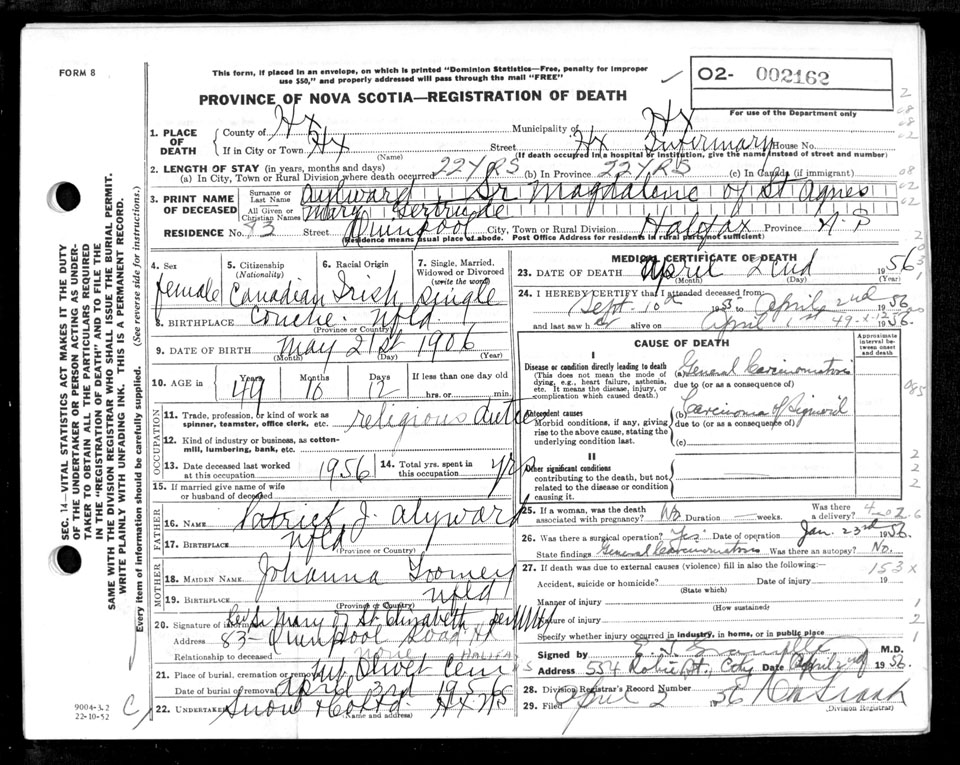 FORM 8
This form, if placed in an envelope, on which is printed "Dominion Statistics—Free, penalty for improper
use $50," and properly addressed will pass through the mail "FREE"
02- 002162
PROVINCE OF NOVA SCOTIA—REGISTRATION OF DEATH
For use of the Department only
1. PLACE OF DEATH
County of Hx Municipality of Hx
If in City or Town Hx Street Hx Infirmary House No.
(Name) (If death occurred in a hospital or institution, give the name instead of street and number)
2. LENGTH OF STAY (in years, months and days)
(a) In City, Town or Rural Division where death occurred 22 YRS (b) In Province 22 YRS (c) In Canada (if immigrant)
3. PRINT NAME OF DECEASED
Surname or Last Name Aylward Sr Magdalene of St Agnes
All Given or Christian Names Mary Gertrude
RESIDENCE No. 83 Street Quinpool City, Town or Rural Division Halifax Province N.S
(Residence means usual place of abode. Post Office Address for residents in rural parts not sufficient)
4. Sex female
5. Citizenship (Nationality) Canadian
6. Racial Origin Irish
7. Single, Married, Widowed or Divorced (write the word) Single
8. BIRTHPLACE Conche. Nfld.
(Province or Country)
9. DATE OF BIRTH May 21st 1906
(Month) (Day) (Year)
10. AGE in Years Months Days If less than one day old
49 10 12 hrs. or min.
OCCUPATION
11. Trade, profession, or kind of work as spinner, teamster, office clerk, etc. religious duties
12. Kind of industry or business, as cotton-mill, lumbering, bank, etc.
13. Date deceased last worked at this occupation 1956
14. Total yrs. spent in this occupation yrs
15. If married give name of wife or husband of deceased
FATHER
16. NAME Patrick J. Alyward
17. BIRTHPLACE Nfld
(Province or Country)
MOTHER
18. MAIDEN NAME Johanna Toomey
19. BIRTHPLACE Nfld
(Province or Country)
20. Signature of informant Rev Sr Mary of St. Elizabeth
Address 83- Quinpool Road Hx
Relationship to deceased none HALIFAX
21. Place of burial, cremation or removal Mt Olivet Cem
Date of burial or removal April 3rd 1956
22. UNDERTAKER Snow & Co Ltd Hx NS
(Name and address)
MEDICAL CERTIFICATE OF DEATH
23. DATE OF DEATH April 2nd 1956
(Month) (Day) (Year)
24. I HEREBY CERTIFY that I attended deceased from
Sept. 10th 1955 to April 2nd 1956
and last saw her alive on April 1st 1956.
49-x-12
CAUSE OF DEATH
Approximate interval between onset and death
I
Disease or condition directly leading to death
(This does not mean the mode of dying, e.g., heart failure, asthenia, etc. It means the disease, injury, or complication which caused death.)
(a) General Carcinomatosis
due to (or as a consequence of)
Antecedent causes
Morbid conditions, if any, giving rise to the above cause, stating the underlying condition last.
(b) Carcinoma of Sigmoid
due to (or as a consequence of)
(c)
II
Other significant conditions
contributing to the death, but not related to the disease or condition causing it.
25. If a woman, was the death associated with pregnancy? No Duration weeks. Was there a delivery?
26. Was there a surgical operation? "Yes" Date of operation Jan. 23rd 1956
State findings General Carcinomatosis Was there an autopsy? No.
27. If death was due to external causes (violence) fill in also the following:— 153x
Accident, suicide or homicide? Date of injury 19
(State which)
Manner of injury
(How sustained)
Nature of injury
Specify whether injury occurred in industry, in home, or in public place
Signed by M.D.
Address 554 Robie St., City Date April 2nd 1956.
28. Division Registrar's Record Number
29. Filed April 2 1956
(Division Registrar)
SEC. 14—VITAL STATISTICS ACT MAKES IT THE DUTY
OF THE UNDERTAKER OR PERSON ACTING AS UNDERTAKER TO OBTAIN ALL THE PARTICULARS REQUIRED
IN THE "REGISTRATION OF DEATH" AND TO FILE THE
SAME WITH THE DIVISION REGISTRAR WHO SHALL ISSUE THE BURIAL PERMIT.
WRITE PLAINLY WITH UNFADING INK. THIS IS A PERMANENT RECORD.
Every item of information should be carefully supplied. (See reverse side for instructions.)
9004-3.2
22-10-52